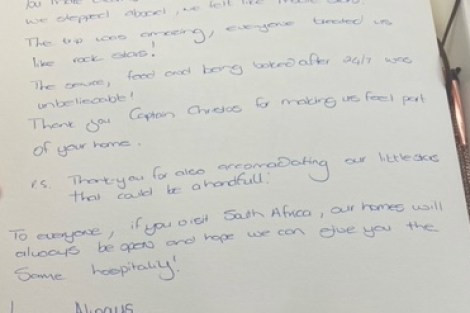 You made
we stepped aboard, we felt like
The trip was amazing, everyone treated us
like rock stars!
The service, food and being looked after 24/7 was
unbelievable!
Thank you Captain for making us feel part
of your home.
P.S. Thank you for also accomadating our little ones
that could be a handfull!
To everyone, if you visit South Africa, our homes will
always be open and hope we can give you the
same hospitality!
Always